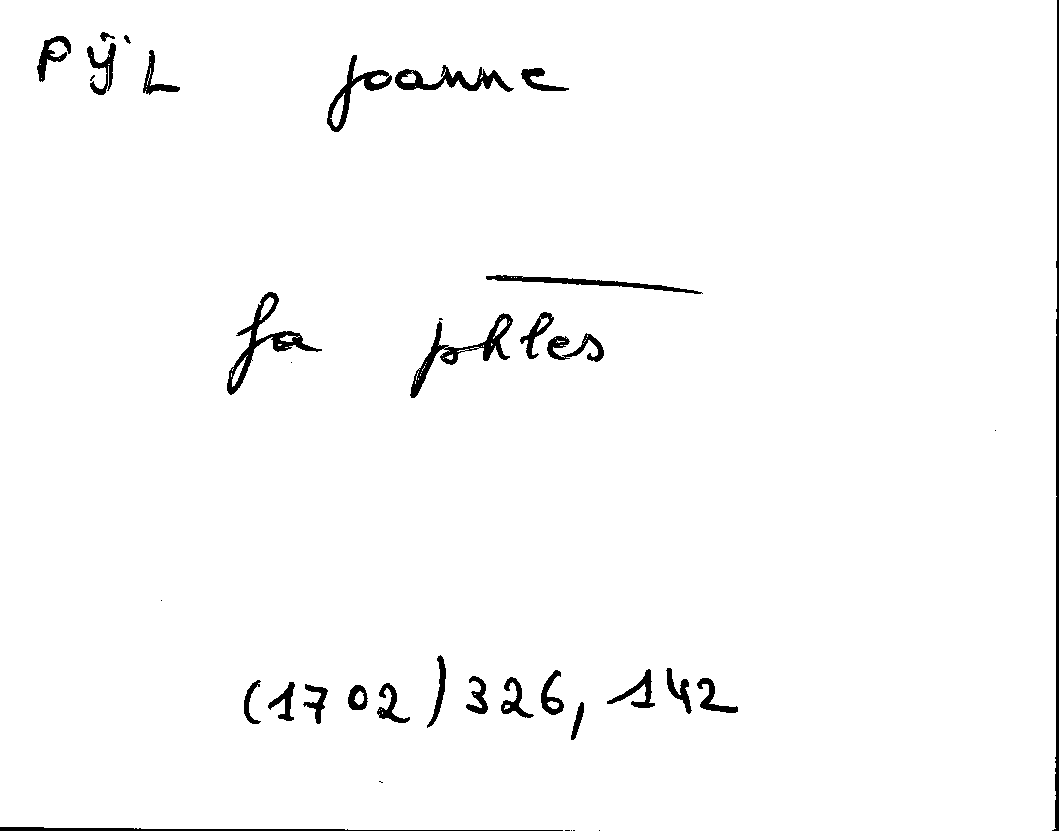 PŸL joanne
fa phles
(1702) 326, 142